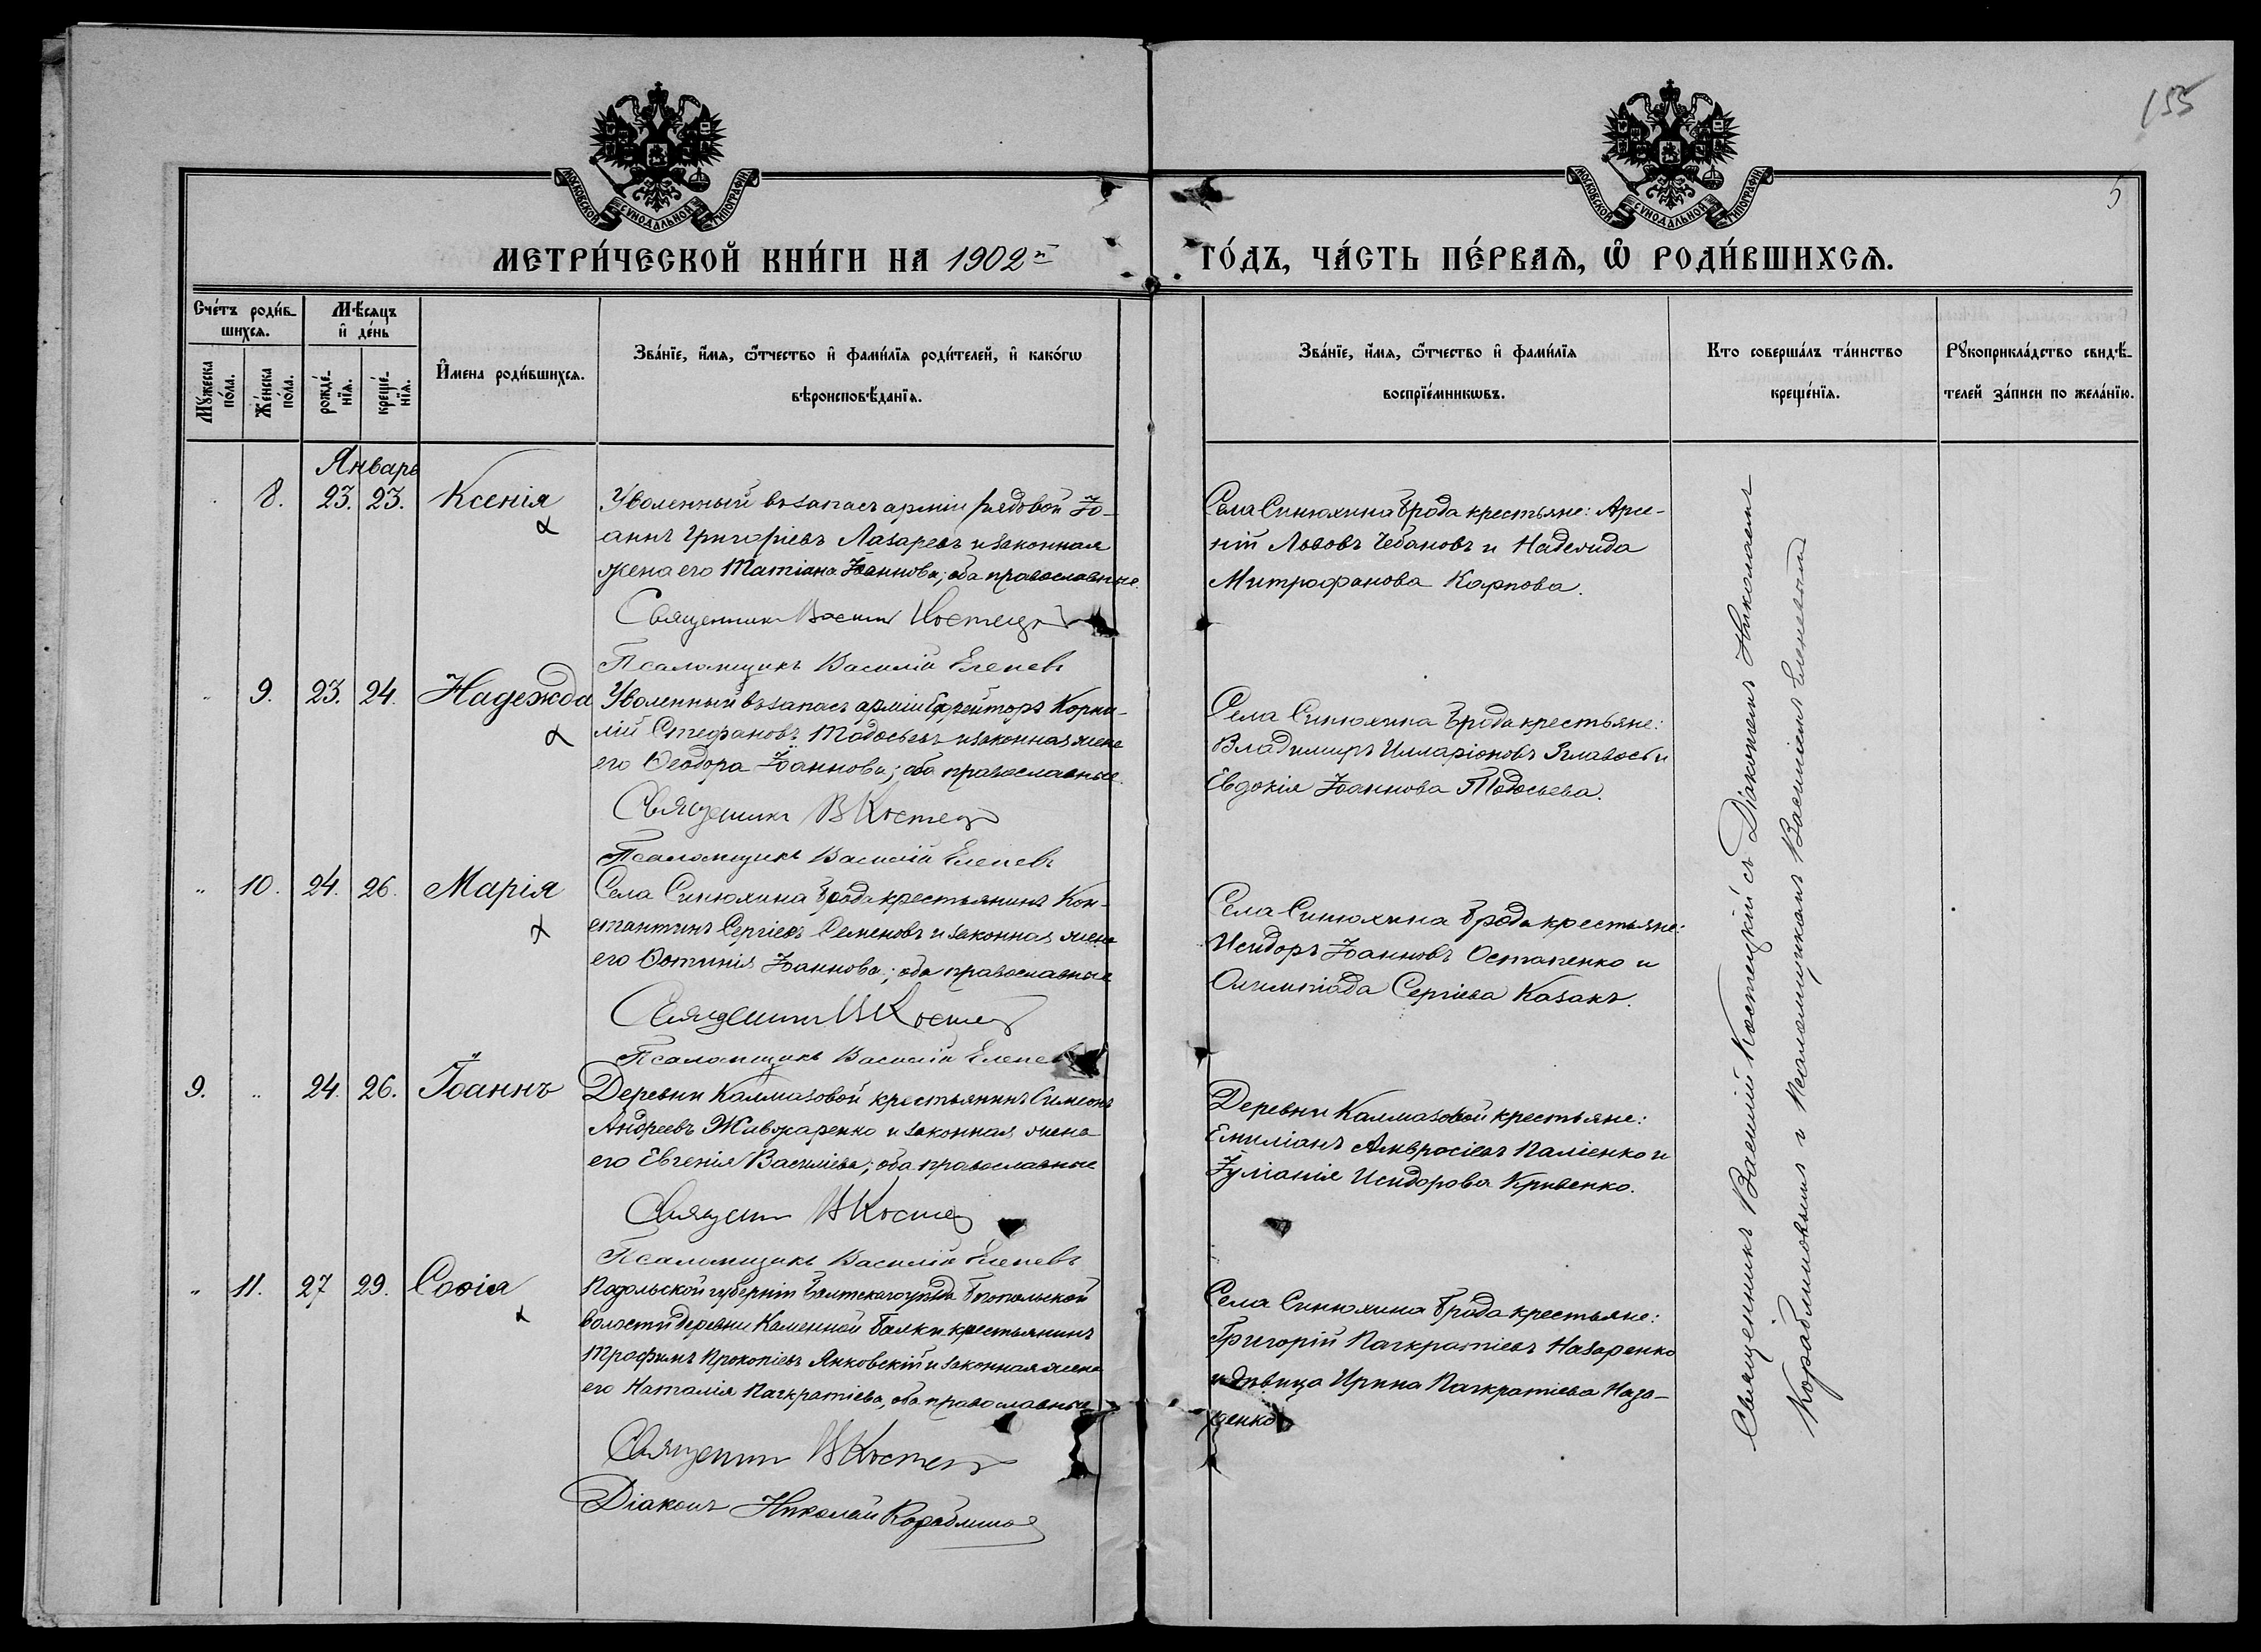 155
5
МОСКОВСКОЙ СѴНОДАЛЬНОЙ ТИПОГРАФІИ
МОСКОВСКОЙ СѴНОДАЛЬНОЙ ТИПОГРАФІИ
МЕТРИ́ЧЕСКОЙ КНИ́ГИ НА 1902й ГО́ДЪ, ЧА́СТЬ ПЕ́РВАѦ, Ѡ҆ РОДИ́ВШИХСѦ.
Сче́тъ роди́в-
шихсѧ.
Мѣ́сѧцъ
и҆ де́нь
Мꙋ́жеска
по́ла.
Же́нска
по́ла.
рожде́-
нїѧ.
креще́-
нїѧ.
И҆́мена роди́вшихсѧ.
Зва́нїе, и҆́мѧ, ѻ҆́тчество и҆ фами́лїѧ роди́телей, и҆ како́гѡ
вѣроисповѣ́данїѧ.
Зва́нїе, и҆́мѧ, ѻ҆́тчество и҆ фами́лїѧ
воспрїе́мникѡвъ.
Кто соверша́лъ та́инство
креще́нїѧ.
Рꙋкоприкла́дство свидѣ́-
телей за́писи по жела́нїю.
Январь
8. 23. 23. Ксенія
Уволенный въ запасъ арміи рядовой Іо-
аннъ Григоріевъ Лазаревъ и законная
жена его Татіана Іоаннова; оба православные.
Священник Василий Костецкий
Псаломщикъ Василій Еленевъ
Села Синюхина Брода крестьяне: Арсе-
ній Львовъ Чебановъ и Надежда
Митрофанова Карпова.
" 9. 23. 24. Надежда
Уволенный въ запасъ арміи Ефрейторъ Корни-
лій Стефановъ Тодосьевъ и законная жена
его Ѳеодора Іоаннова; оба православные.
Священник В Костец
Псаломщикъ Василій Еленевъ
Села Синюхина Брода крестьяне:
Владимиръ Илларіоновъ и
Евдокія Іоаннова Тодосьева.
" 10. 24. 26. Марія
Села Синюхина Брода крестьянинъ Кон-
стантинъ Сергіевъ Семеновъ и законная жена
его Фотинія Іоаннова; оба православные
Священник В Костец
Псаломщикъ Василій Еленевъ
Села Синюхина Брода крестьяне:
Исидоръ Іоанновъ Остапенко и
Олимпіада Сергіева Казакъ.
9. " 24. 26. Іоаннъ
Деревни Калмазовой крестьянинъ Симеонъ
Андреевъ Живжаренко и законная жена
его Евгенія Василіева; оба православные
Священ В Костец
Псаломщикъ Василій Еленевъ
Деревни Калмазовой крестьяне:
Емиліанъ Амвросіевъ Паліенко и
Іуліанія Исидорова Кривенко.
" 11. 27 29. Софія
Подольской губерніи Балтскаго уѣзда Богопольской
волости деревни Каменной Балки крестьянинъ
Трофимъ Прокопіевъ Янковскій и законная жена
его Наталія Панкратіева, оба православные
Священ В Костец
Діаконъ Николай Кораблинов
Села Синюхина Брода крестьяне:
Григорій Панкратіевъ Назаренко
и дѣвица Ирина Панкратіева Наза-
ренко
Священникъ Василій Костецкій съ Діакономъ Николаемъ
Кораблиновымъ и Псаломщикомъ Василіемъ Еленевым